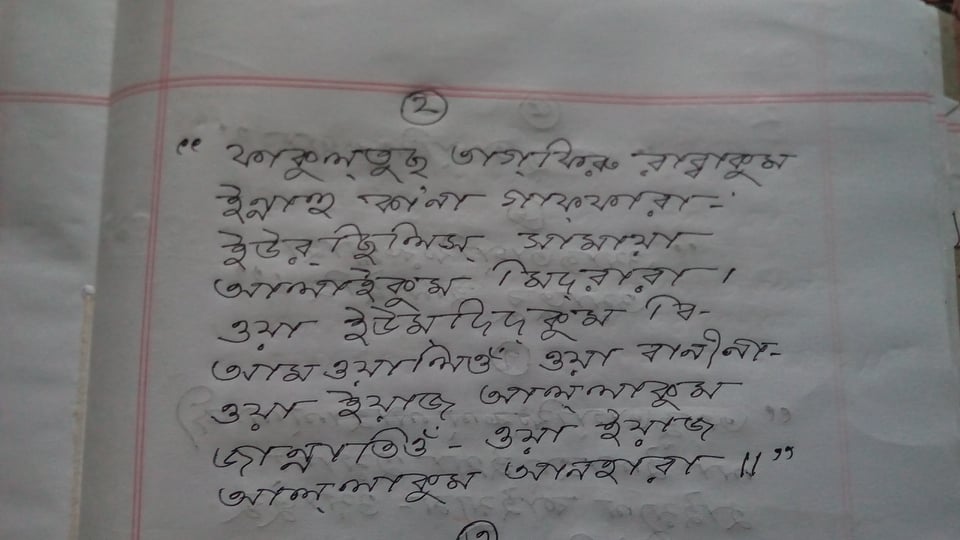 ২
“ ফাকুল্‌তুছ্ তাগ্‌ফিরু রাব্বাকুম
ইন্নাহু কা'না গাফ্‌ফারা-
ইউর্‌ছিলিস্ সামায়া
আলাইকুম মিদ্‌রারা ।
ওয়া ইউম্‌দিদ্‌কুম বি-
আমওয়ালিওঁ ওয়া বানীনা-
ওয়া ইয়াজ্ আল্‌লাকুম
জান্নাতিওঁ - ওয়া ইয়াজ্
আল্‌লাকুম আনহারা ॥”
৩